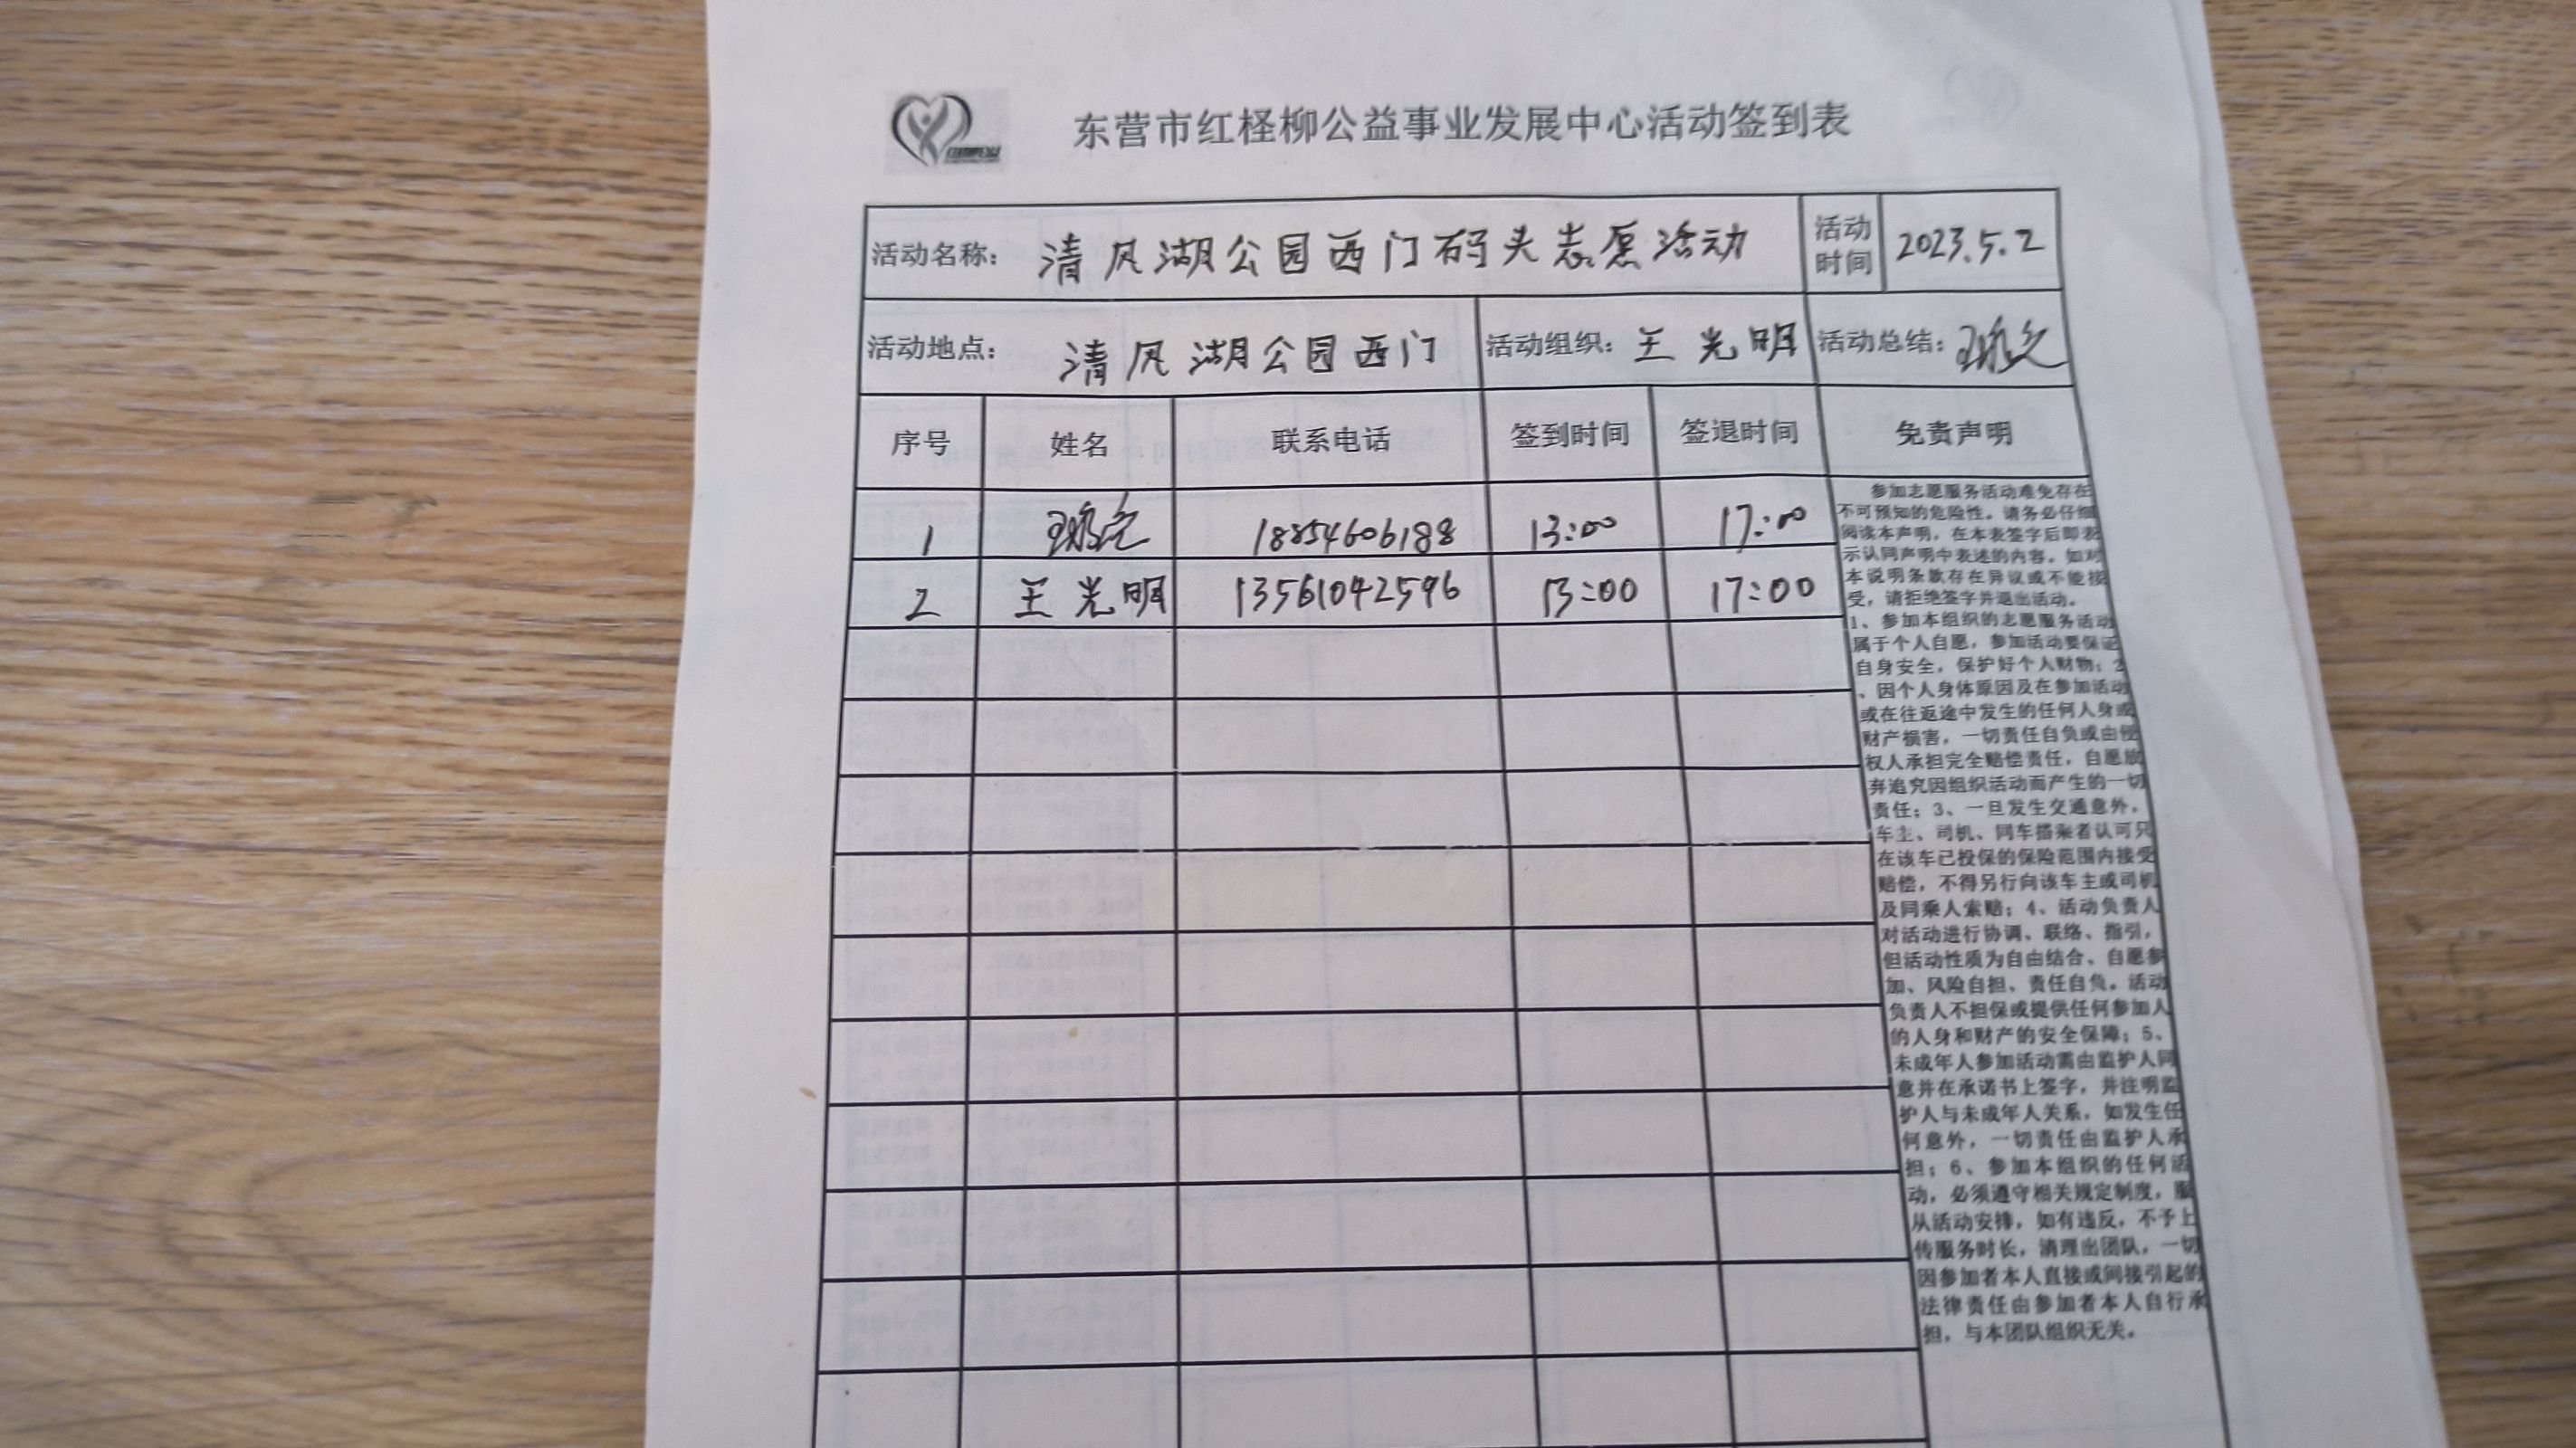 东营市红柽柳公益事业发展中心活动签到表
活动名称： 清风湖公园西门码头志愿活动 活动时间 2023.5.2
活动地点： 清风湖公园西门 活动组织： 王光明 活动总结：
序号 姓名 联系电话 签到时间 签退时间 免责声明
1 18854606188 13:00 17:00
2 王光明 13561042596 13:00 17:00
参加志愿服务活动难免存在
不可预知的危险性。请务必仔细
阅读本声明，在本表签字后即表
示认同声明中表述的内容。如对
本说明条款存在异议或不能接
受，请拒绝签字并退出活动。
1、参加本组织的志愿服务活动
属于个人自愿，参加活动要保证
自身安全，保护好个人财物；2
、因个人身体原因及在参加活动
或在往返途中发生的任何人身或
财产损害，一切责任自负或由侵
权人承担完全赔偿责任，自愿放
弃追究因组织活动而产生的一切
责任；3、一旦发生交通意外，
车主、司机、同车搭乘者认可只
在该车已投保的保险范围内接受
赔偿，不得另行向该车主或司机
及同乘人索赔；4、活动负责人
对活动进行协调、联络、指引，
但活动性质为自由结合、自愿参
加、风险自担、责任自负。活动
负责人不担保或提供任何参加人
的人身和财产的安全保障；5、
未成年人参加活动需由监护人同
意并在承诺书上签字，并注明监
护人与未成年人关系，如发生任
何意外，一切责任由监护人承
担；6、参加本组织的任何活
动，必须遵守相关规定制度，服
从活动安排，如有违反，不予上
传服务时长，清理出团队，一切
因参加者本人直接或间接引起的
法律责任由参加者本人自行承
担，与本团队组织无关。